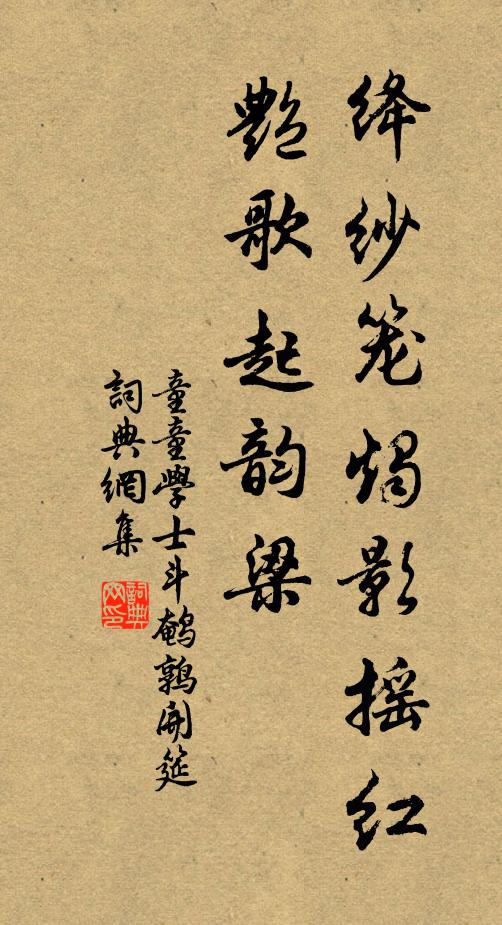 绛纱笼烛影摇红
艷歌起韵梁
童童學士斗鹌鹑開筵
詞典網集
詞典网印